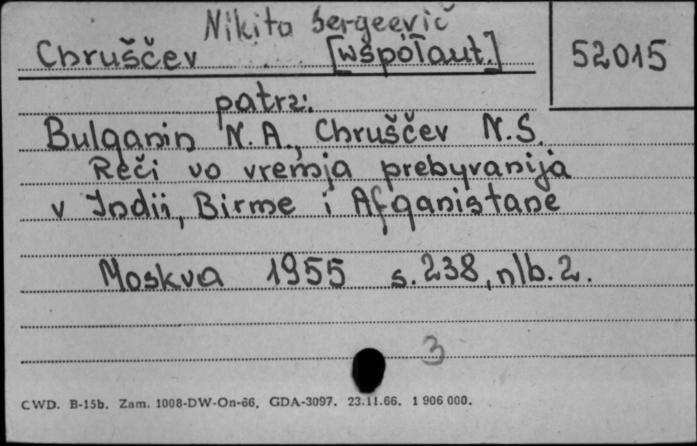 Nikita Sergeevič
Chruščev [współaut.] 52015
patrz:
Bulganin N.A., Chruščev N.S.
Reči vo vremja prebyvanija
v Indii, Birme i Afganistane
Moskva 1955 s.238, nlb.2.
3
CWD. B-15b. Zam. 1008-DW-On-66. GDA-3097. 23.11.66. 1 906 000.